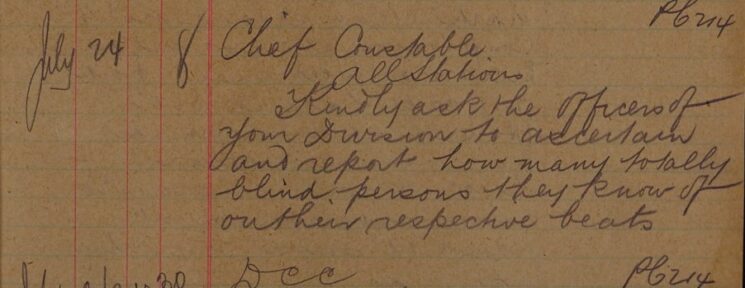 PC 214
July 24 8 Chief Constable
All Stations
Kindly ask the officers of
your Division to ascertain
and report how many totally
blind persons they know of
on their respective beats
30 DCC PC 214